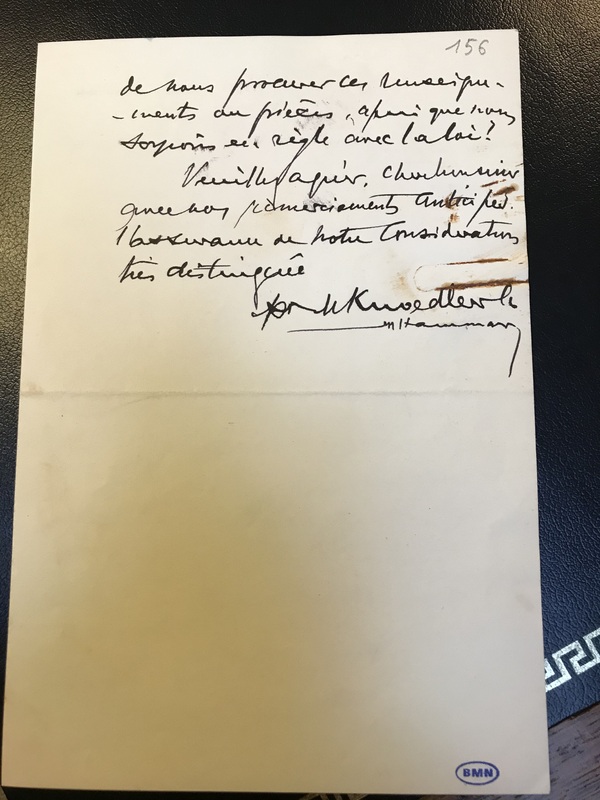 156
de nous procurer ces renseigne-
-ments ou pièces, afin que nous
soyons en règle avec la loi?
Veuillez agréer, cher monsieur
avec nos remerciements anticipés.
l'assurance de notre considération
très distinguée
pr M Knoedler & Co
m Hamman
BMN